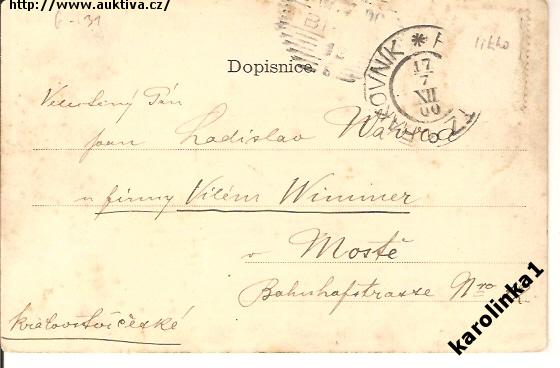 http://www.auktiva.cz/
6-131
Dopisnice.
RAKOVNÍK *
17
7
XII
00
Velectěný Pán
pan Ladislav Wávra
u firmy Vilém Wimmer
v Mostě
Bahnhofstrasse Nro
Království české
karolinka1